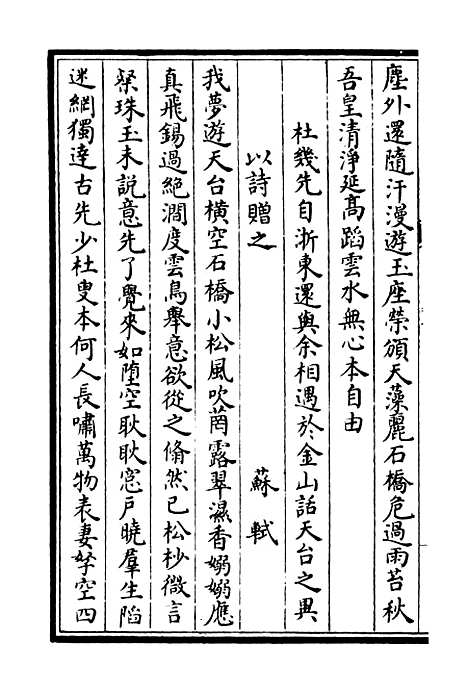 塵外還隨汗漫遊玉座榮頒天藻麗石橋危過雨苔秋
吾皇清淨延髙蹈雲水無心本自由
杜幾先自浙東還與余相遇於金山話天台之異
以詩贈之
蘇軾
我夢遊天台橫空石橋小松風吹𦊰露翠濕香嫋嫋應
真飛錫過絶澗度雲鳥舉意欲從之翛然已松杪微言
粲珠玉未説意先了覺來如墮空耿耿窓戶曉羣生陷
迷網獨達古先少杜叟本何人長嘯萬物表妻孥空四